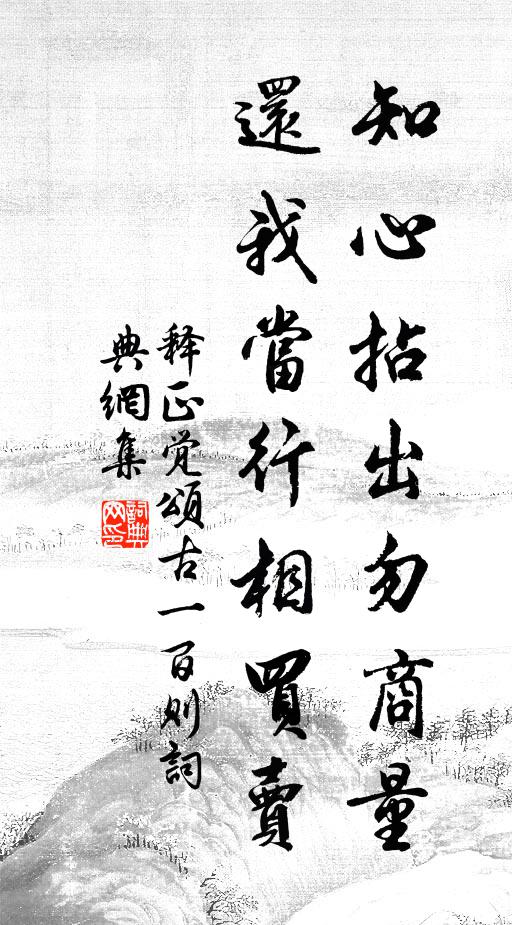 知心拈出勿商量
還我當行相買賣
释正觉頌古一百则詞
典網集
詞典网印